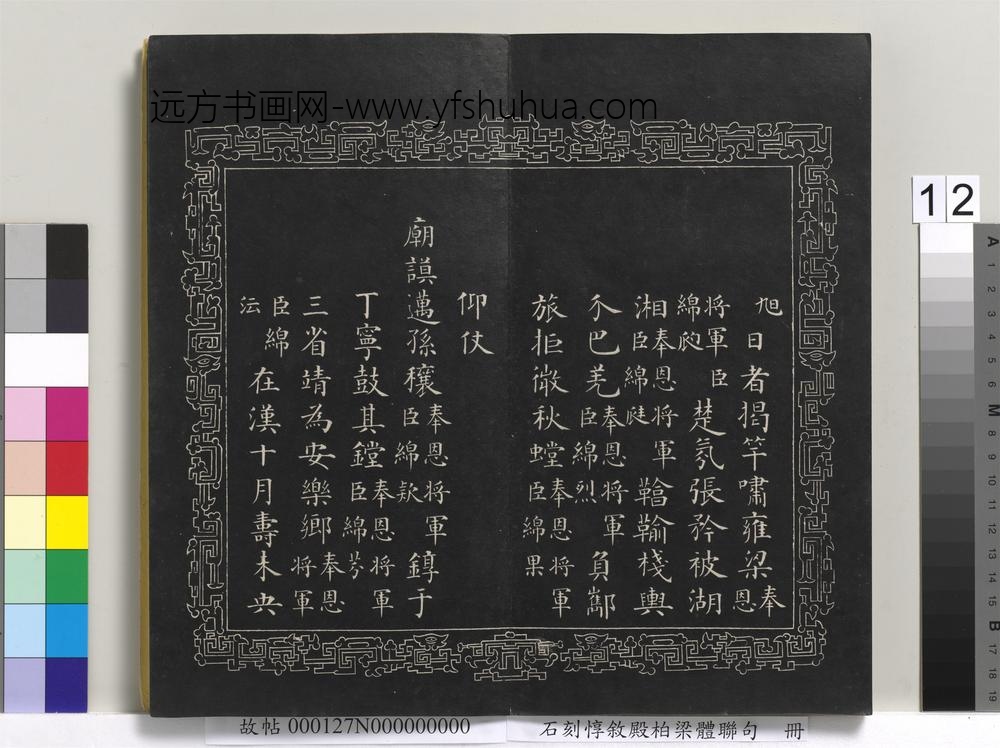 远方书画网-www.yfshuhua.com
旭日者揭竿嘯雍梁奉恩
將軍臣綿楚氛張矜被湖
湘奉恩將軍臣綿庭棧輿
巴羌奉恩將軍臣綿烈負酇
旅拒微秋螳奉恩將軍臣綿果
仰仗
廟謨邁孫穰奉恩將軍臣綿欵錞于
丁寧鼓其鏜奉恩將軍臣綿芬
三省靖為安樂鄉奉恩將軍
臣綿沄在漢十月壽未央
12
A 1 2 3 4 5 6 M 8 9 10 11 12 13 14 15 B 17 18 19
故帖 000127N000000000
石刻惇敘殿柏梁體聯句 冊